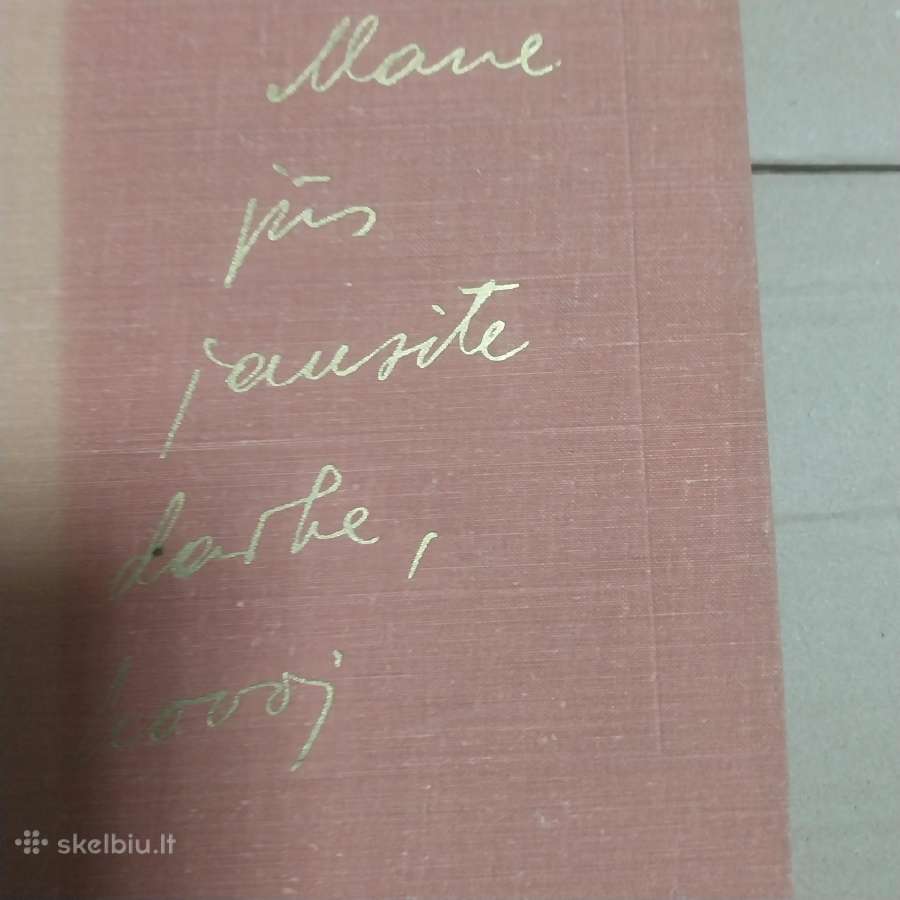 Mane
jūs
jausite
darbe,
kovoj
skelbiu.lt